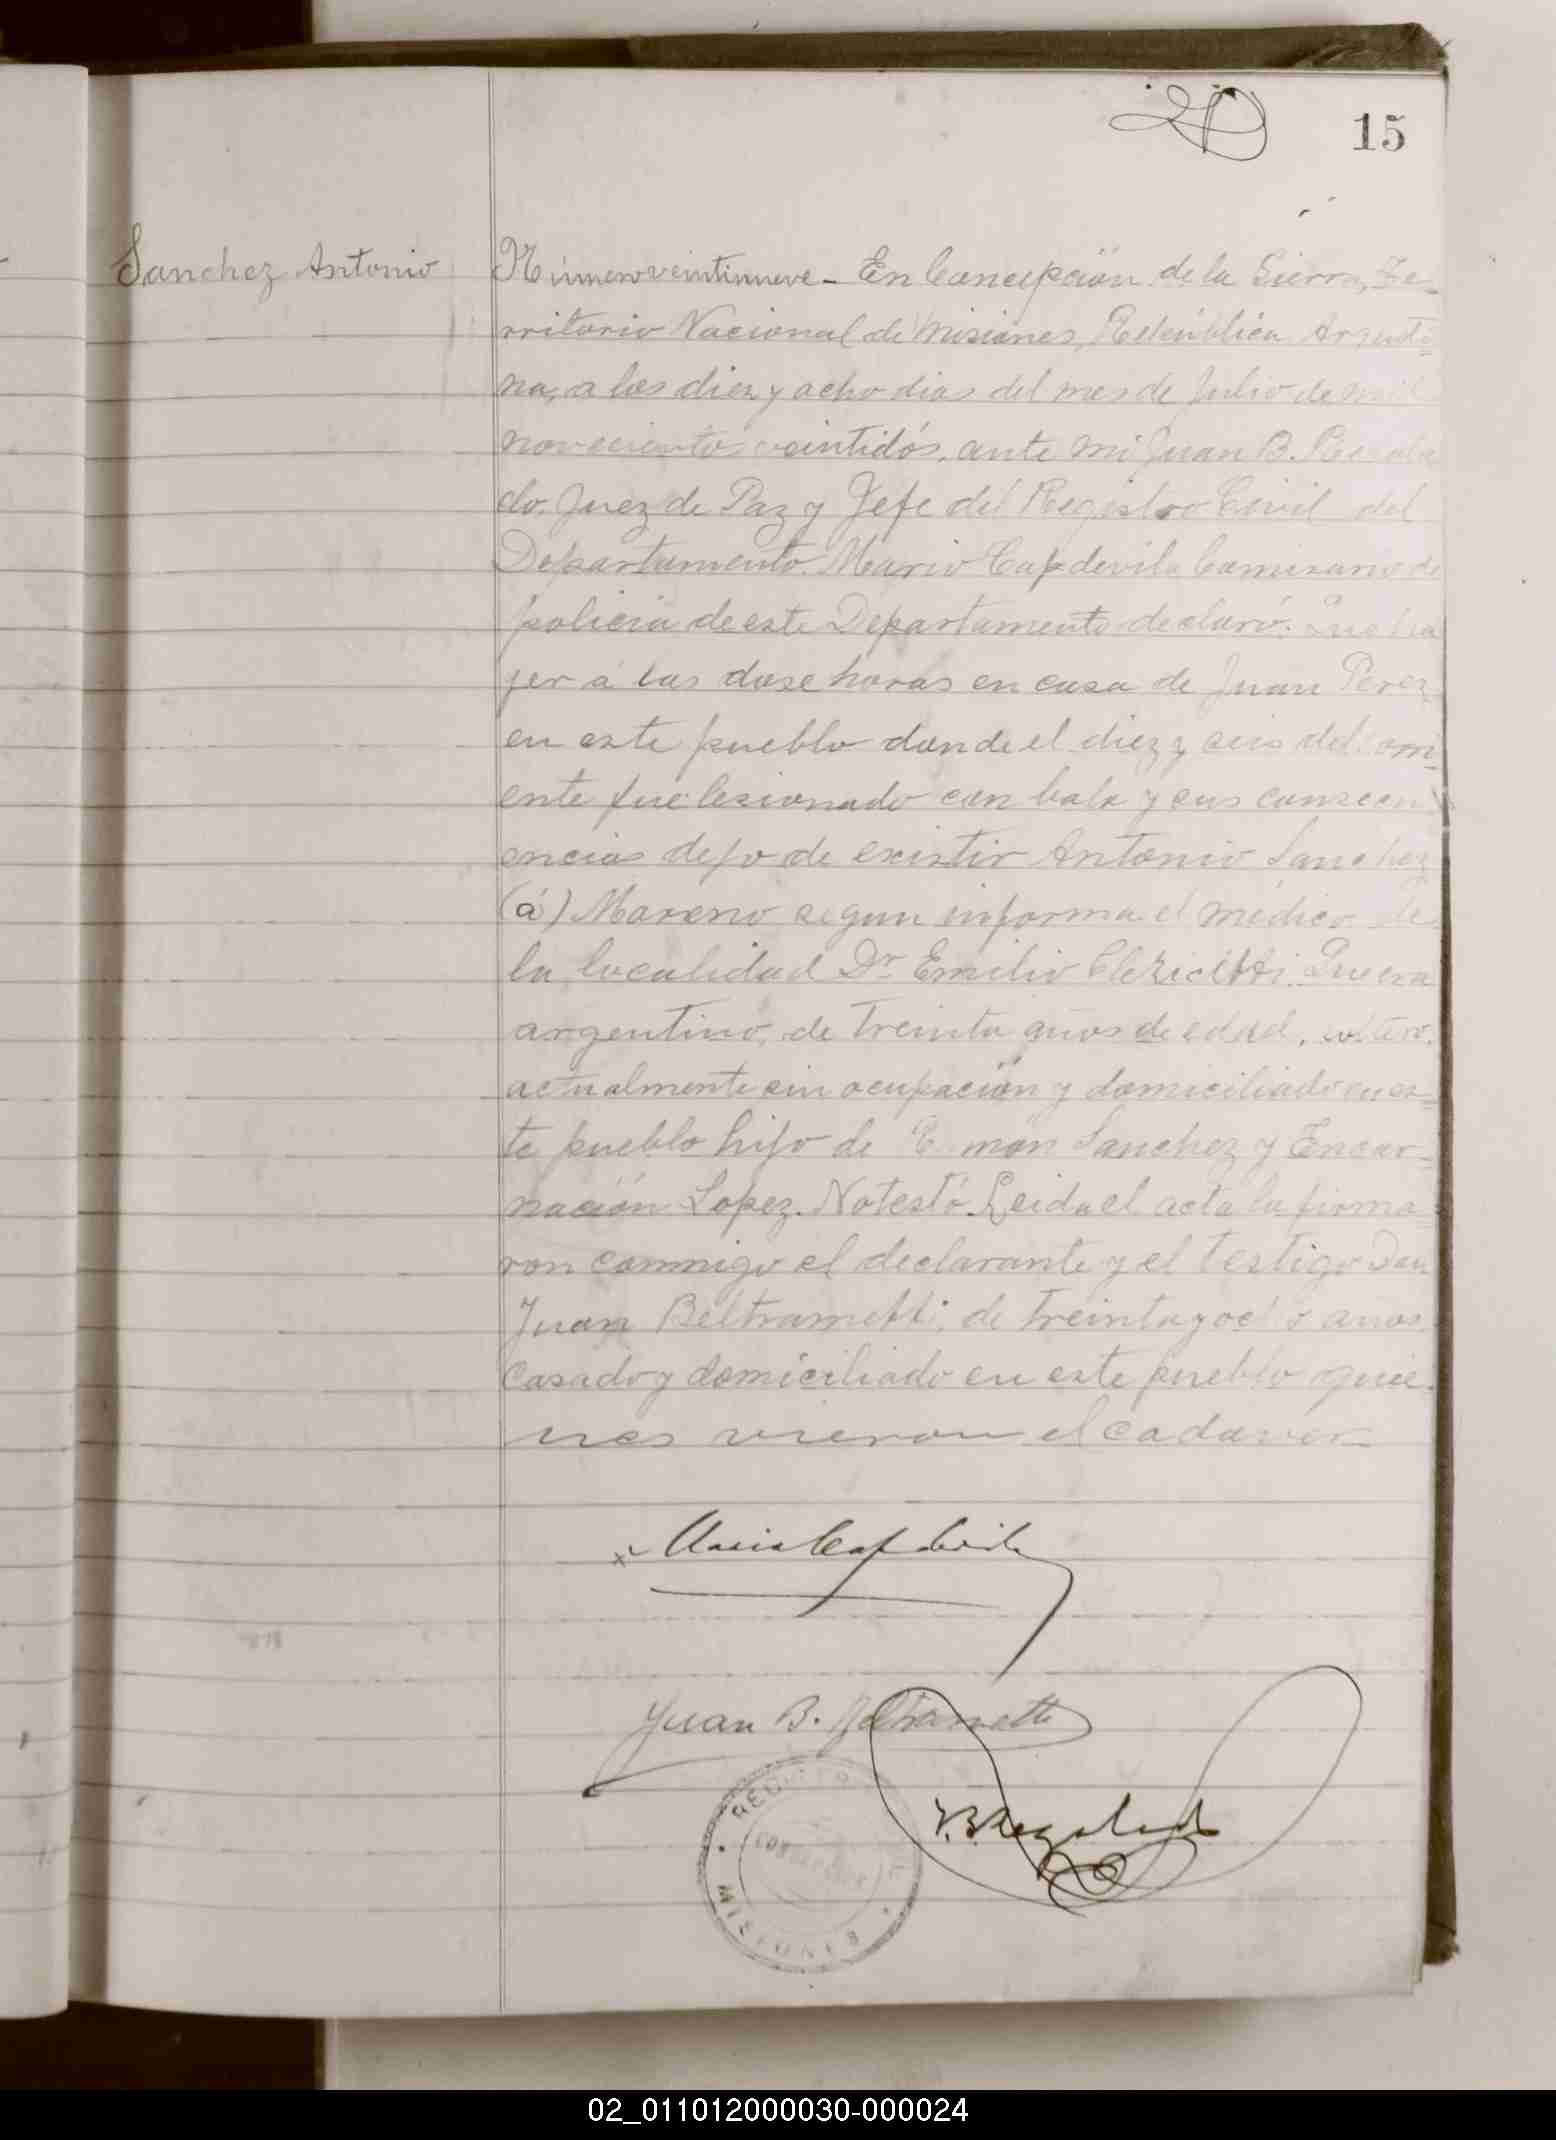 15
Sanchez Antonio
Número veintinueve - En Concepción de la Sierra, Te-
rritorio Nacional de Misiones, República Argenti-
na, a los diez y ocho dias del mes de Julio de mil
novecientos veintidós, ante mi Juan B. Regala
do, Juez de Paz y Jefe del Registro Civil del
Departamento. Mario Capdevila Comisario de
policia de este Departamento declaró: Que ha
yer á las dose horas en casa de Juan Perez
en este pueblo donde el diez y seis del corri-
ente fue lesionado con bala y sus consecu
encias dejo de existir Antonio Sanchez
(á) Moreno segun informa el médico de
la localidad Dr. Emilio Clericetti. Que era
argentino, de treinta años de edad, soltero,
actualmente sin ocupación y domiciliado en es-
te pueblo hijo de Sanchez y Encar-
nación Lopez. No testó. Leida el acta la firma-
ron conmigo el declarante y el testigo Don
Juan Beltrametti, de treinta y ocho años
casado y domiciliado en este pueblo quie-
nes vieron el cadaver
Mario Capdevila
Juan B. Beltrametti
J.B. Regalado
MISIONES
02_011012000030-000024